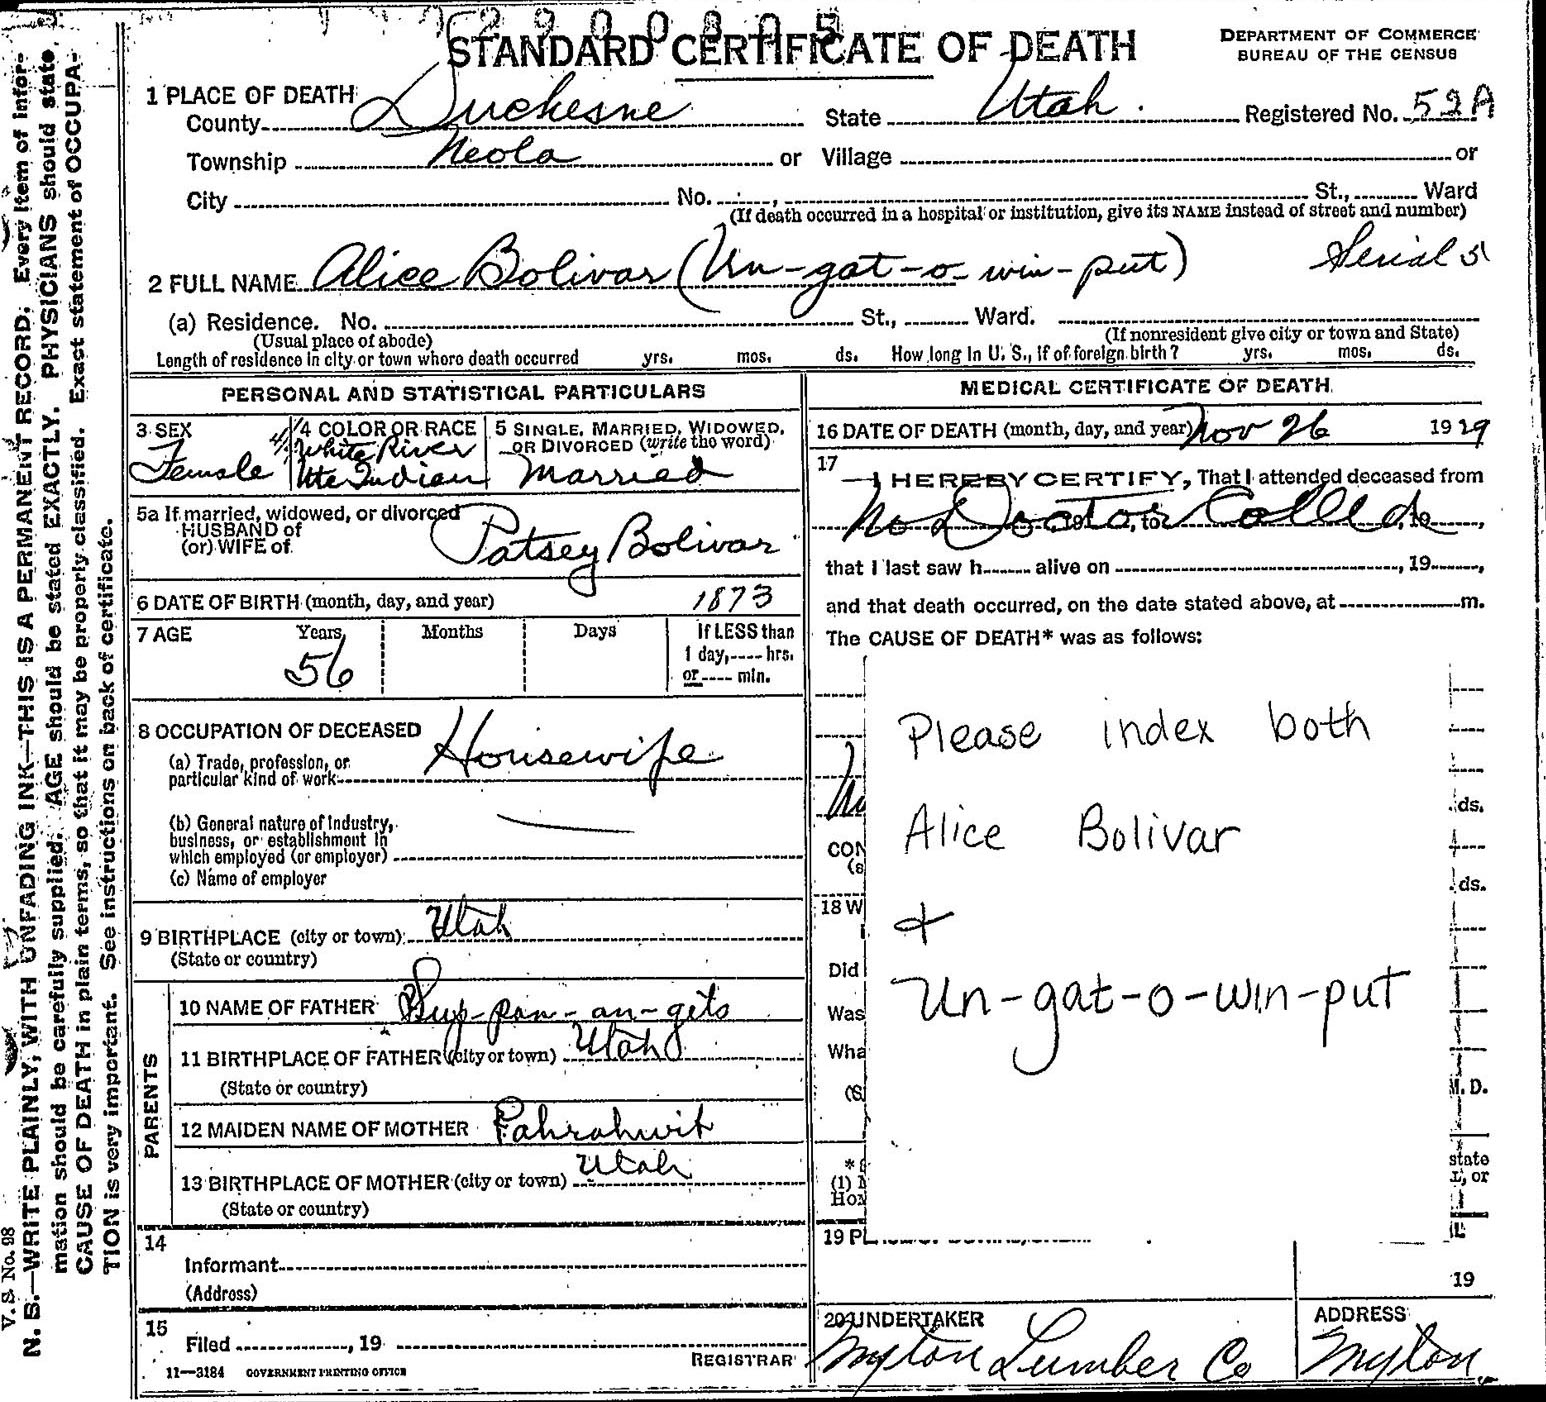 2900805
STANDARD CERTIFICATE OF DEATH
DEPARTMENT OF COMMERCE
BUREAU OF THE CENSUS
1 PLACE OF DEATH
County Duchesne State Utah. Registered No. 52A
Township Neola or Village or
City No. , St., Ward
(If death occurred in a hospital or institution, give its NAME instead of street and number)
2 FULL NAME Alice Bolivar (Un-gat-o-win-put) Serial 5
(a) Residence. No. St., Ward.
(Usual place of abode) (If nonresident give city or town and State)
Length of residence in city or town where death occurred yrs. mos. ds. How long in U. S., if of foreign birth? yrs. mos. ds.
PERSONAL AND STATISTICAL PARTICULARS
3 SEX
Female
4/4
4 COLOR OR RACE
White River
Ute Indian
5 SINGLE, MARRIED, WIDOWED,
OR DIVORCED (write the word)
Married
5a If married, widowed, or divorced
HUSBAND of
(or) WIFE of Patsey Bolivar
6 DATE OF BIRTH (month, day, and year) 1873
7 AGE Years Months Days If LESS than
56 1 day, hrs.
or min.
8 OCCUPATION OF DECEASED
(a) Trade, profession, or
particular kind of work Housewife
(b) General nature of industry,
business, or establishment in
which employed (or employer)
(c) Name of employer
9 BIRTHPLACE (city or town) Utah
(State or country)
PARENTS
10 NAME OF FATHER Sup-pan-an-gets
11 BIRTHPLACE OF FATHER (city or town) Utah
(State or country)
12 MAIDEN NAME OF MOTHER Pahrahwit
13 BIRTHPLACE OF MOTHER (city or town) Utah
(State or country)
14
Informant
(Address)
15
Filed , 19
REGISTRAR
11—3184 GOVERNMENT PRINTING OFFICE
MEDICAL CERTIFICATE OF DEATH
16 DATE OF DEATH (month, day, and year) Nov 26 1929
17
I HEREBY CERTIFY, That I attended deceased from
No Doctor Called
, 19 , to , 19 ,
that I last saw h alive on , 19 ,
and that death occurred, on the date stated above, at m.
The CAUSE OF DEATH* was as follows:
Please index both
Alice Bolivar
+
Un-gat-o-win-put
ds.
CON
(s
ds.
18 W
Did
Was
Wha
(S
M. D.
* S
state
(1) M
, or
Hom
19 PL
19
20 UNDERTAKER ADDRESS
Myton Lumber Co Myton
V. S. No. 98
N. B.—WRITE PLAINLY, WITH UNFADING INK—THIS IS A PERMANENT RECORD. Every item of infor-
mation should be carefully supplied. AGE should be stated EXACTLY. PHYSICIANS should state
CAUSE OF DEATH in plain terms, so that it may be properly classified. Exact statement of OCCUPA-
TION is very important. See instructions on back of certificate.